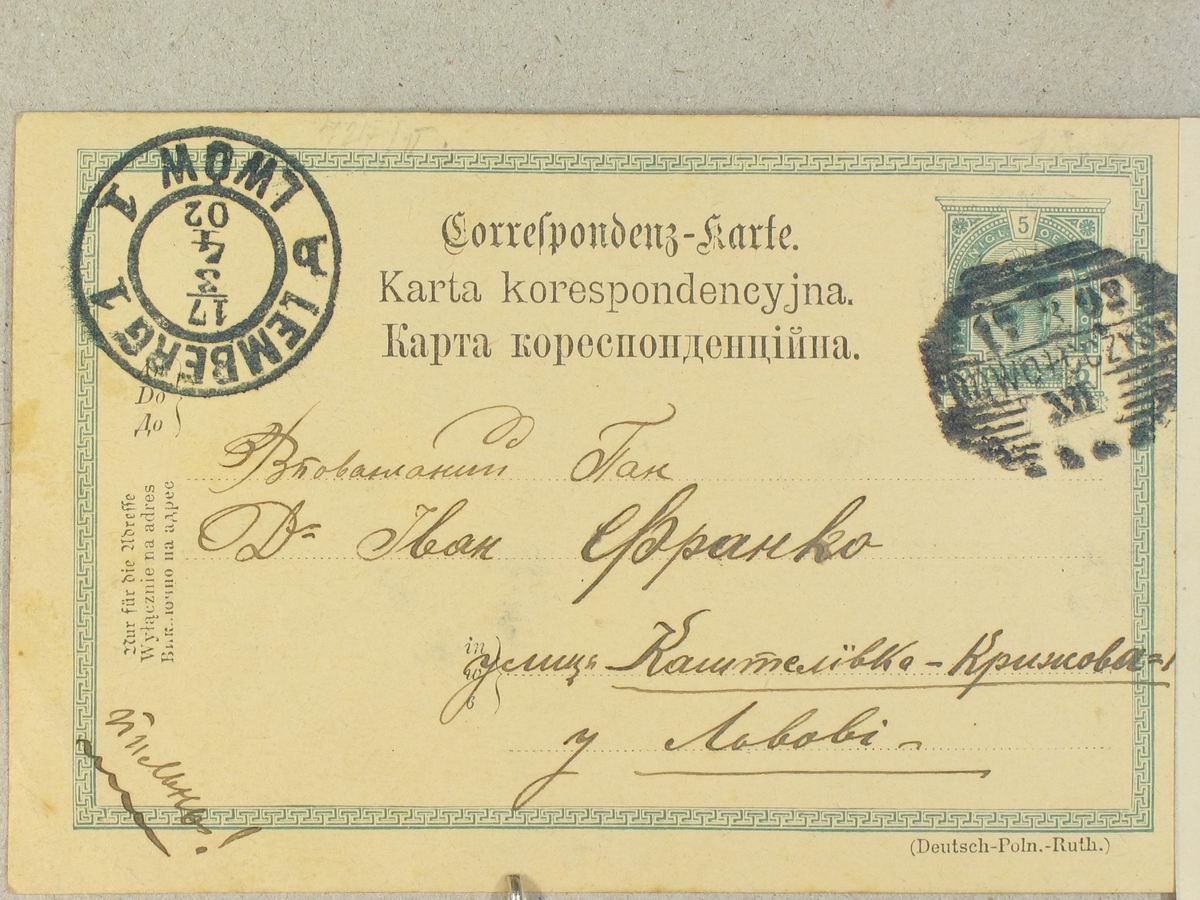 LWOW 1
LEMBERG 1
17
3
4
02
Correspondenz-Karte.
Karta korespondencyjna.
Карта кореспонденційна.
5
17 3 02
An
Do
До
Nur für die Adresse
Wyłącznie na adres
Виключно на адрес
Вповажаний Пан
Dr Іван Франко
in
w
в
улиця Каштелівка-Крижова
у Львові
пильно!
(Deutsch-Poln.-Ruth.)